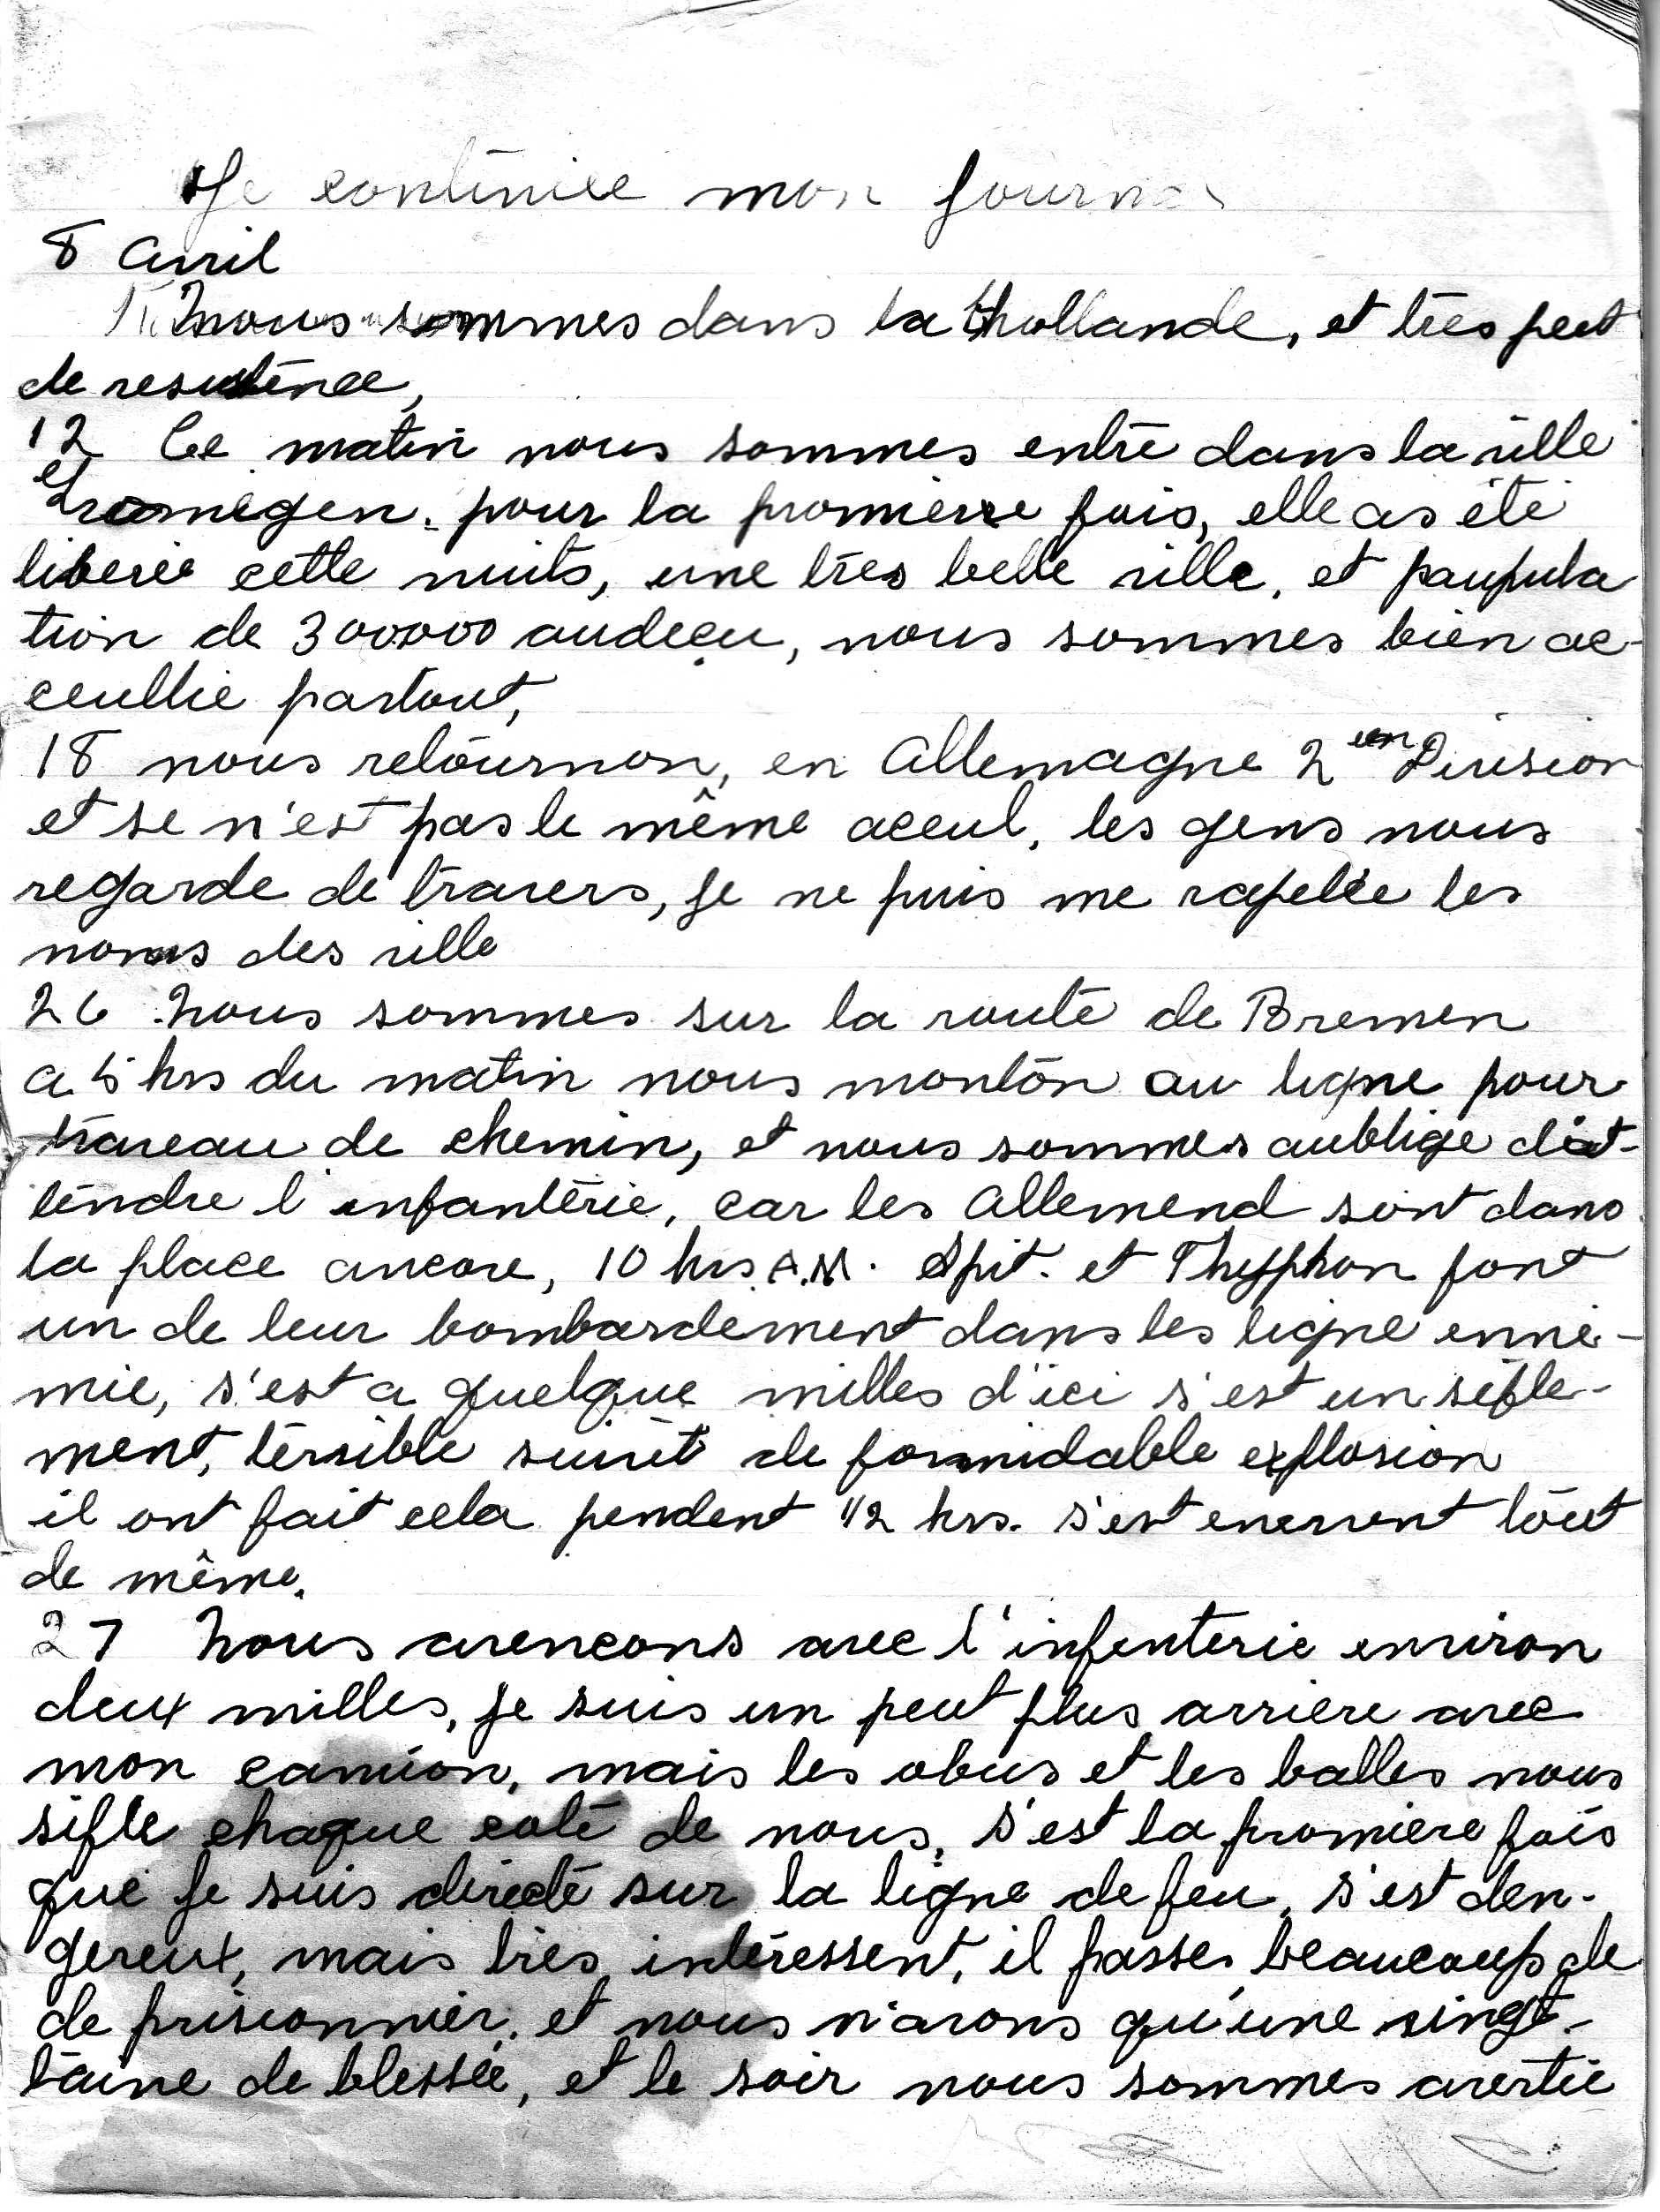 Je continue mon journal
8 Avril
nous sommes dans la hollande, et très peut
de resistence,
12 Ce matin nous sommes entré dans la ville
pour la promiere fois, elle as été
liberée cette nuits, une très belle ville, et paupula
tion de 300000 audeçu, nous sommes bien ac-
ceullie partout,
18 nous retournon, en Allemagne 2 Division
et se n'est pas le même aceul, les gens nous
regarde de travers, je ne puis me rapelée les
noms des ville
26 nous sommes sur la route de Bremen
a 5 hrs du matin nous montón au ligne pour
traveau de chemin, et nous sommes aublige d'at-
tendre l'infantérie, car les Allemend sont dans
la place ancore, 10 hrs A.M. Spit. et Thyphon font
un de leur bombardement dans les ligne enne-
mie, s'est a quelque milles d'ici s'est un sifle-
ment, terrible suivit de formidable explosion
il ont fait cela pendent 1/2 hrs. s'est enervent tout
de même.
27 nous avencons avec l'infenterie environ
deux milles, je suis un peut plus arriere avec
mon camion, mais les obus et les balles nous
sifle chaque coté de nous, s'est la promiere fois
que je suis directe sur la ligne de feu, s'est den-
gereux, mais très intéressent, il passe beaucoup de
de prisionnier, et nous n'avons qu'une vingt-
taine de blessée, et le soir nous sommes avertie